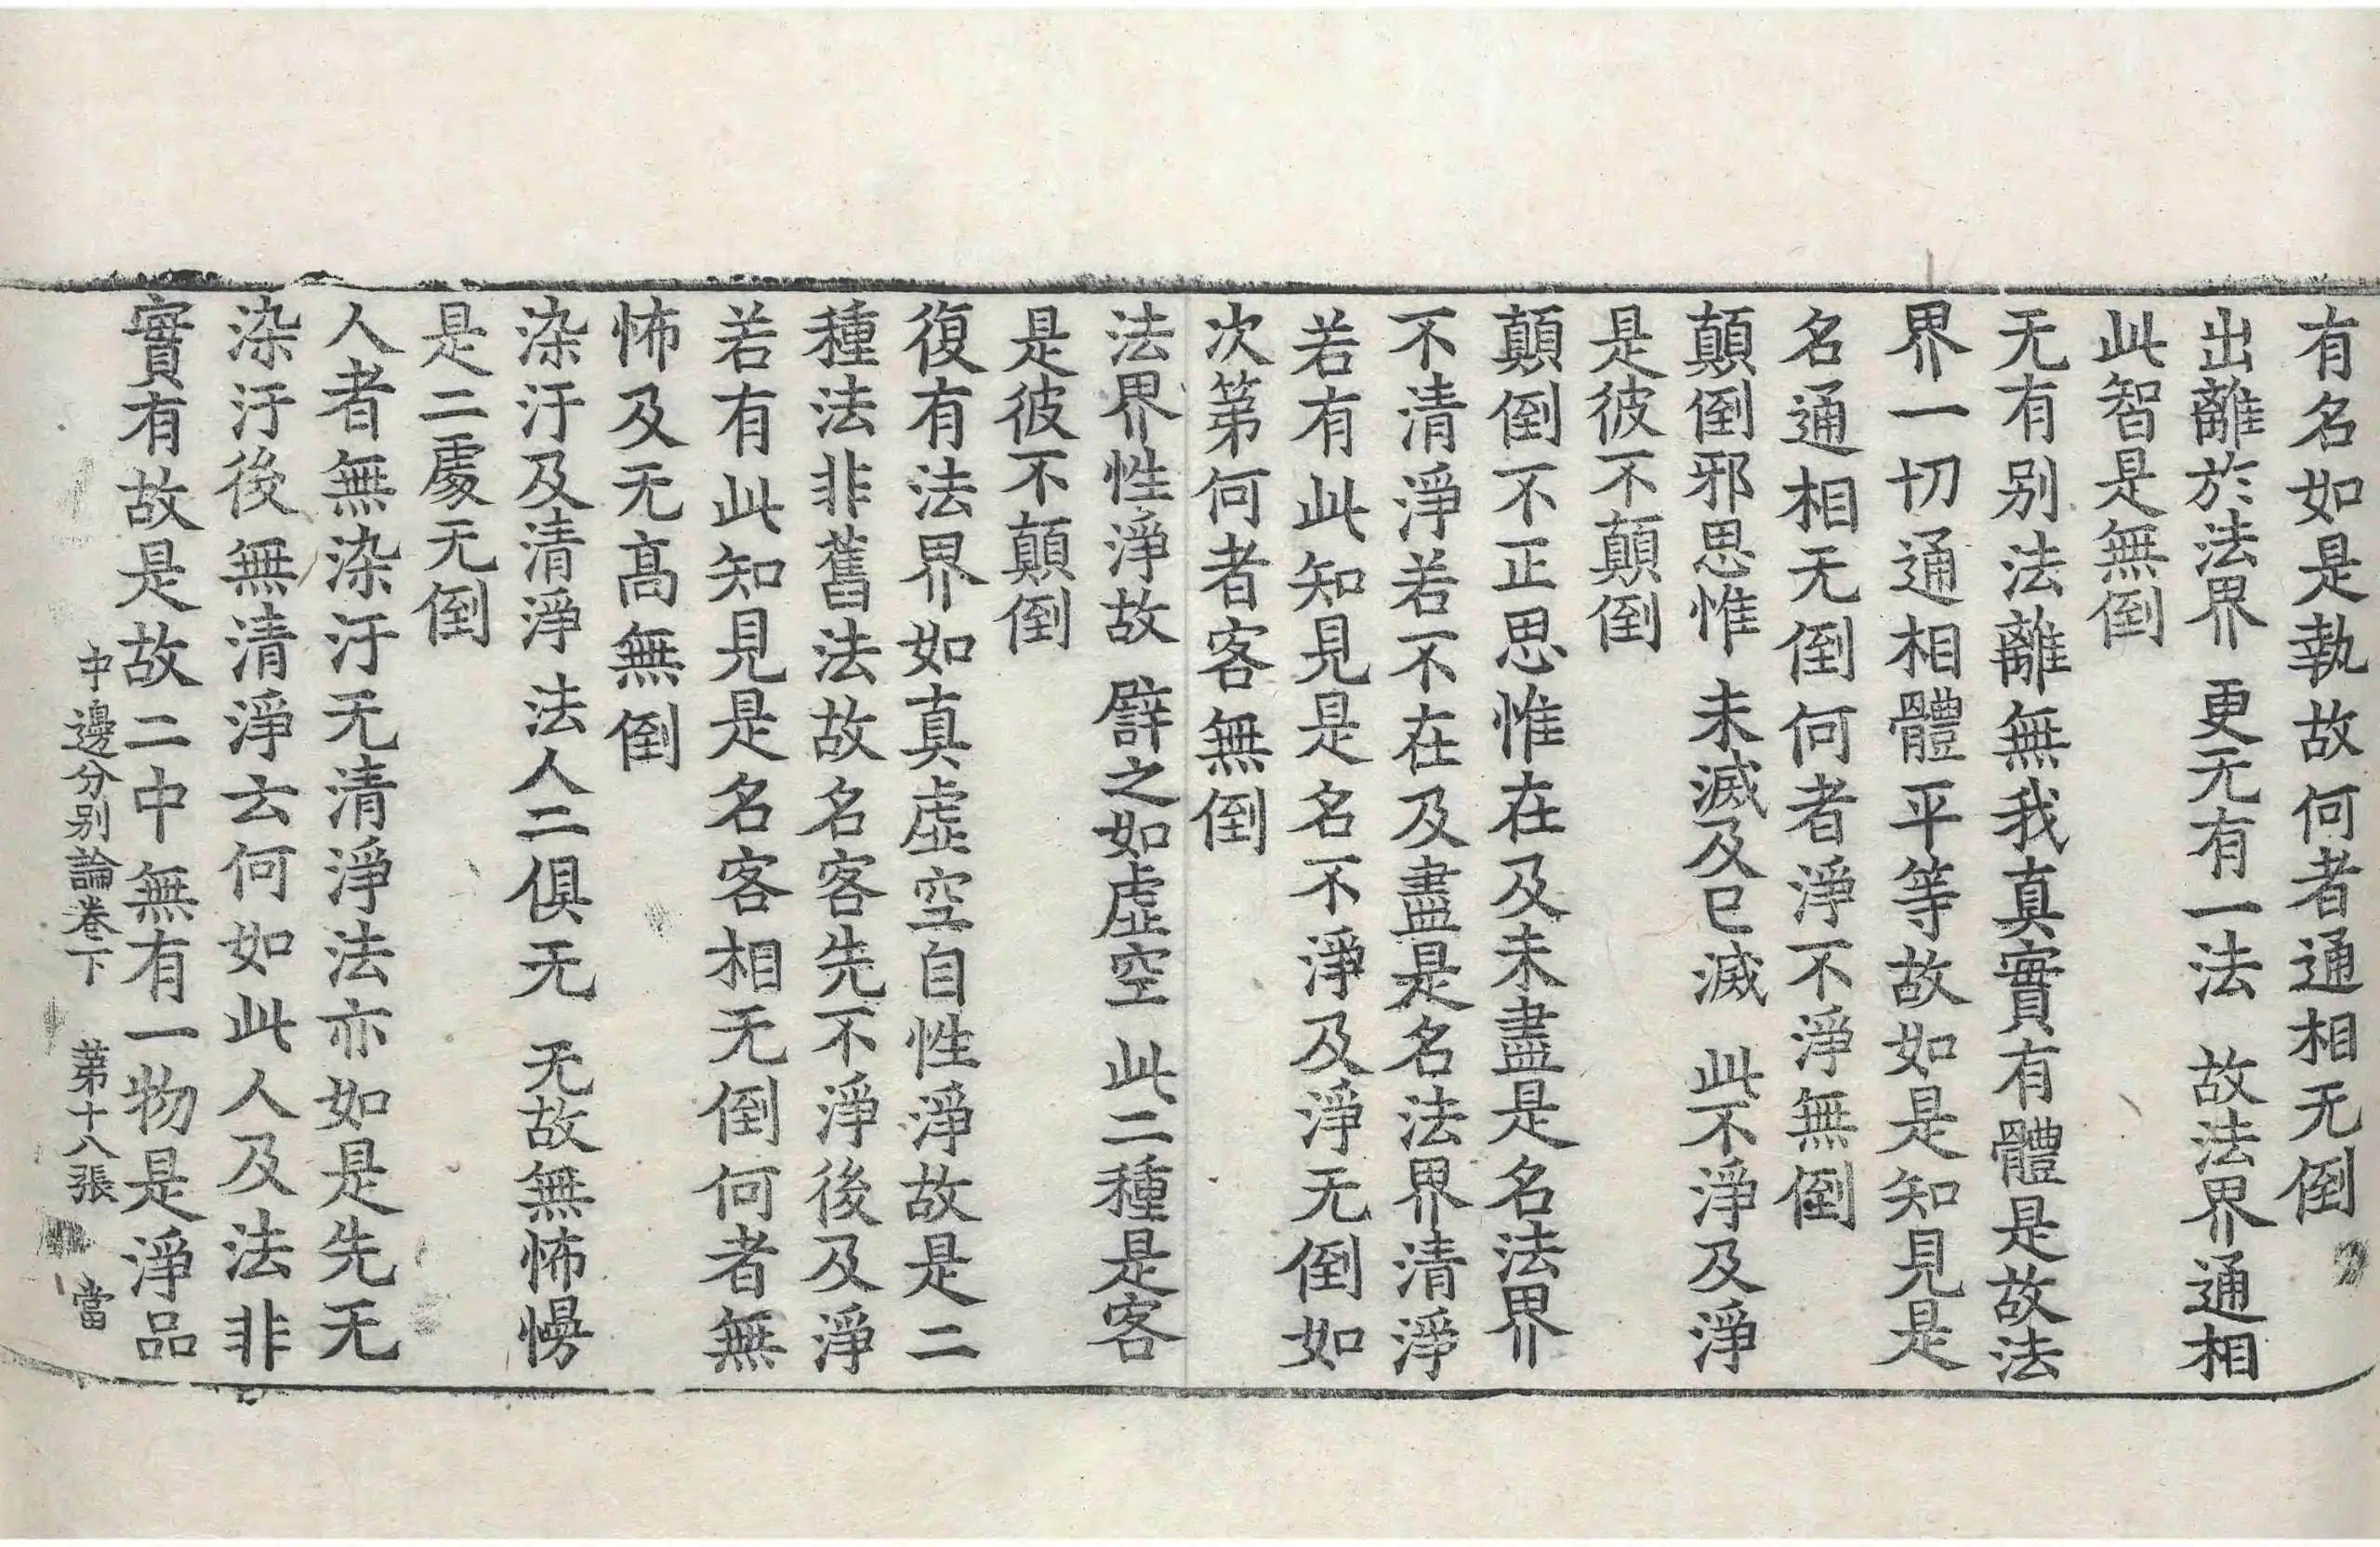 有名如是執故何者通相无倒
出離於法界　更无有一法　故法界通相
此智是無倒
无有别法離無我真實有體是故法
界一切通相體平等故如是知見是
名通相无倒何者淨不淨無倒
顛倒邪思惟　未滅及已滅　此不淨及淨
是彼不顛倒
顛倒不正思惟在及未盡是名法界
不清淨若不在及盡是名法界清淨
若有此知見是名不淨及淨无倒如
次第何者客無倒
法界性淨故　譬之如虛空　此二種是客
是彼不顛倒
復有法界如真虛空自性淨故是二
種法非舊法故名客先不淨後及淨
若有此知見是名客相无倒何者無
怖及无高無倒
染汙及清淨　法人二俱无　无故無怖慢
是二處无倒
人者無染汙无清淨法亦如是先无
染汙後無清淨去何如此人及法非
實有故是故二中無有一物是淨品
中邊分别論卷下　第十八張　當